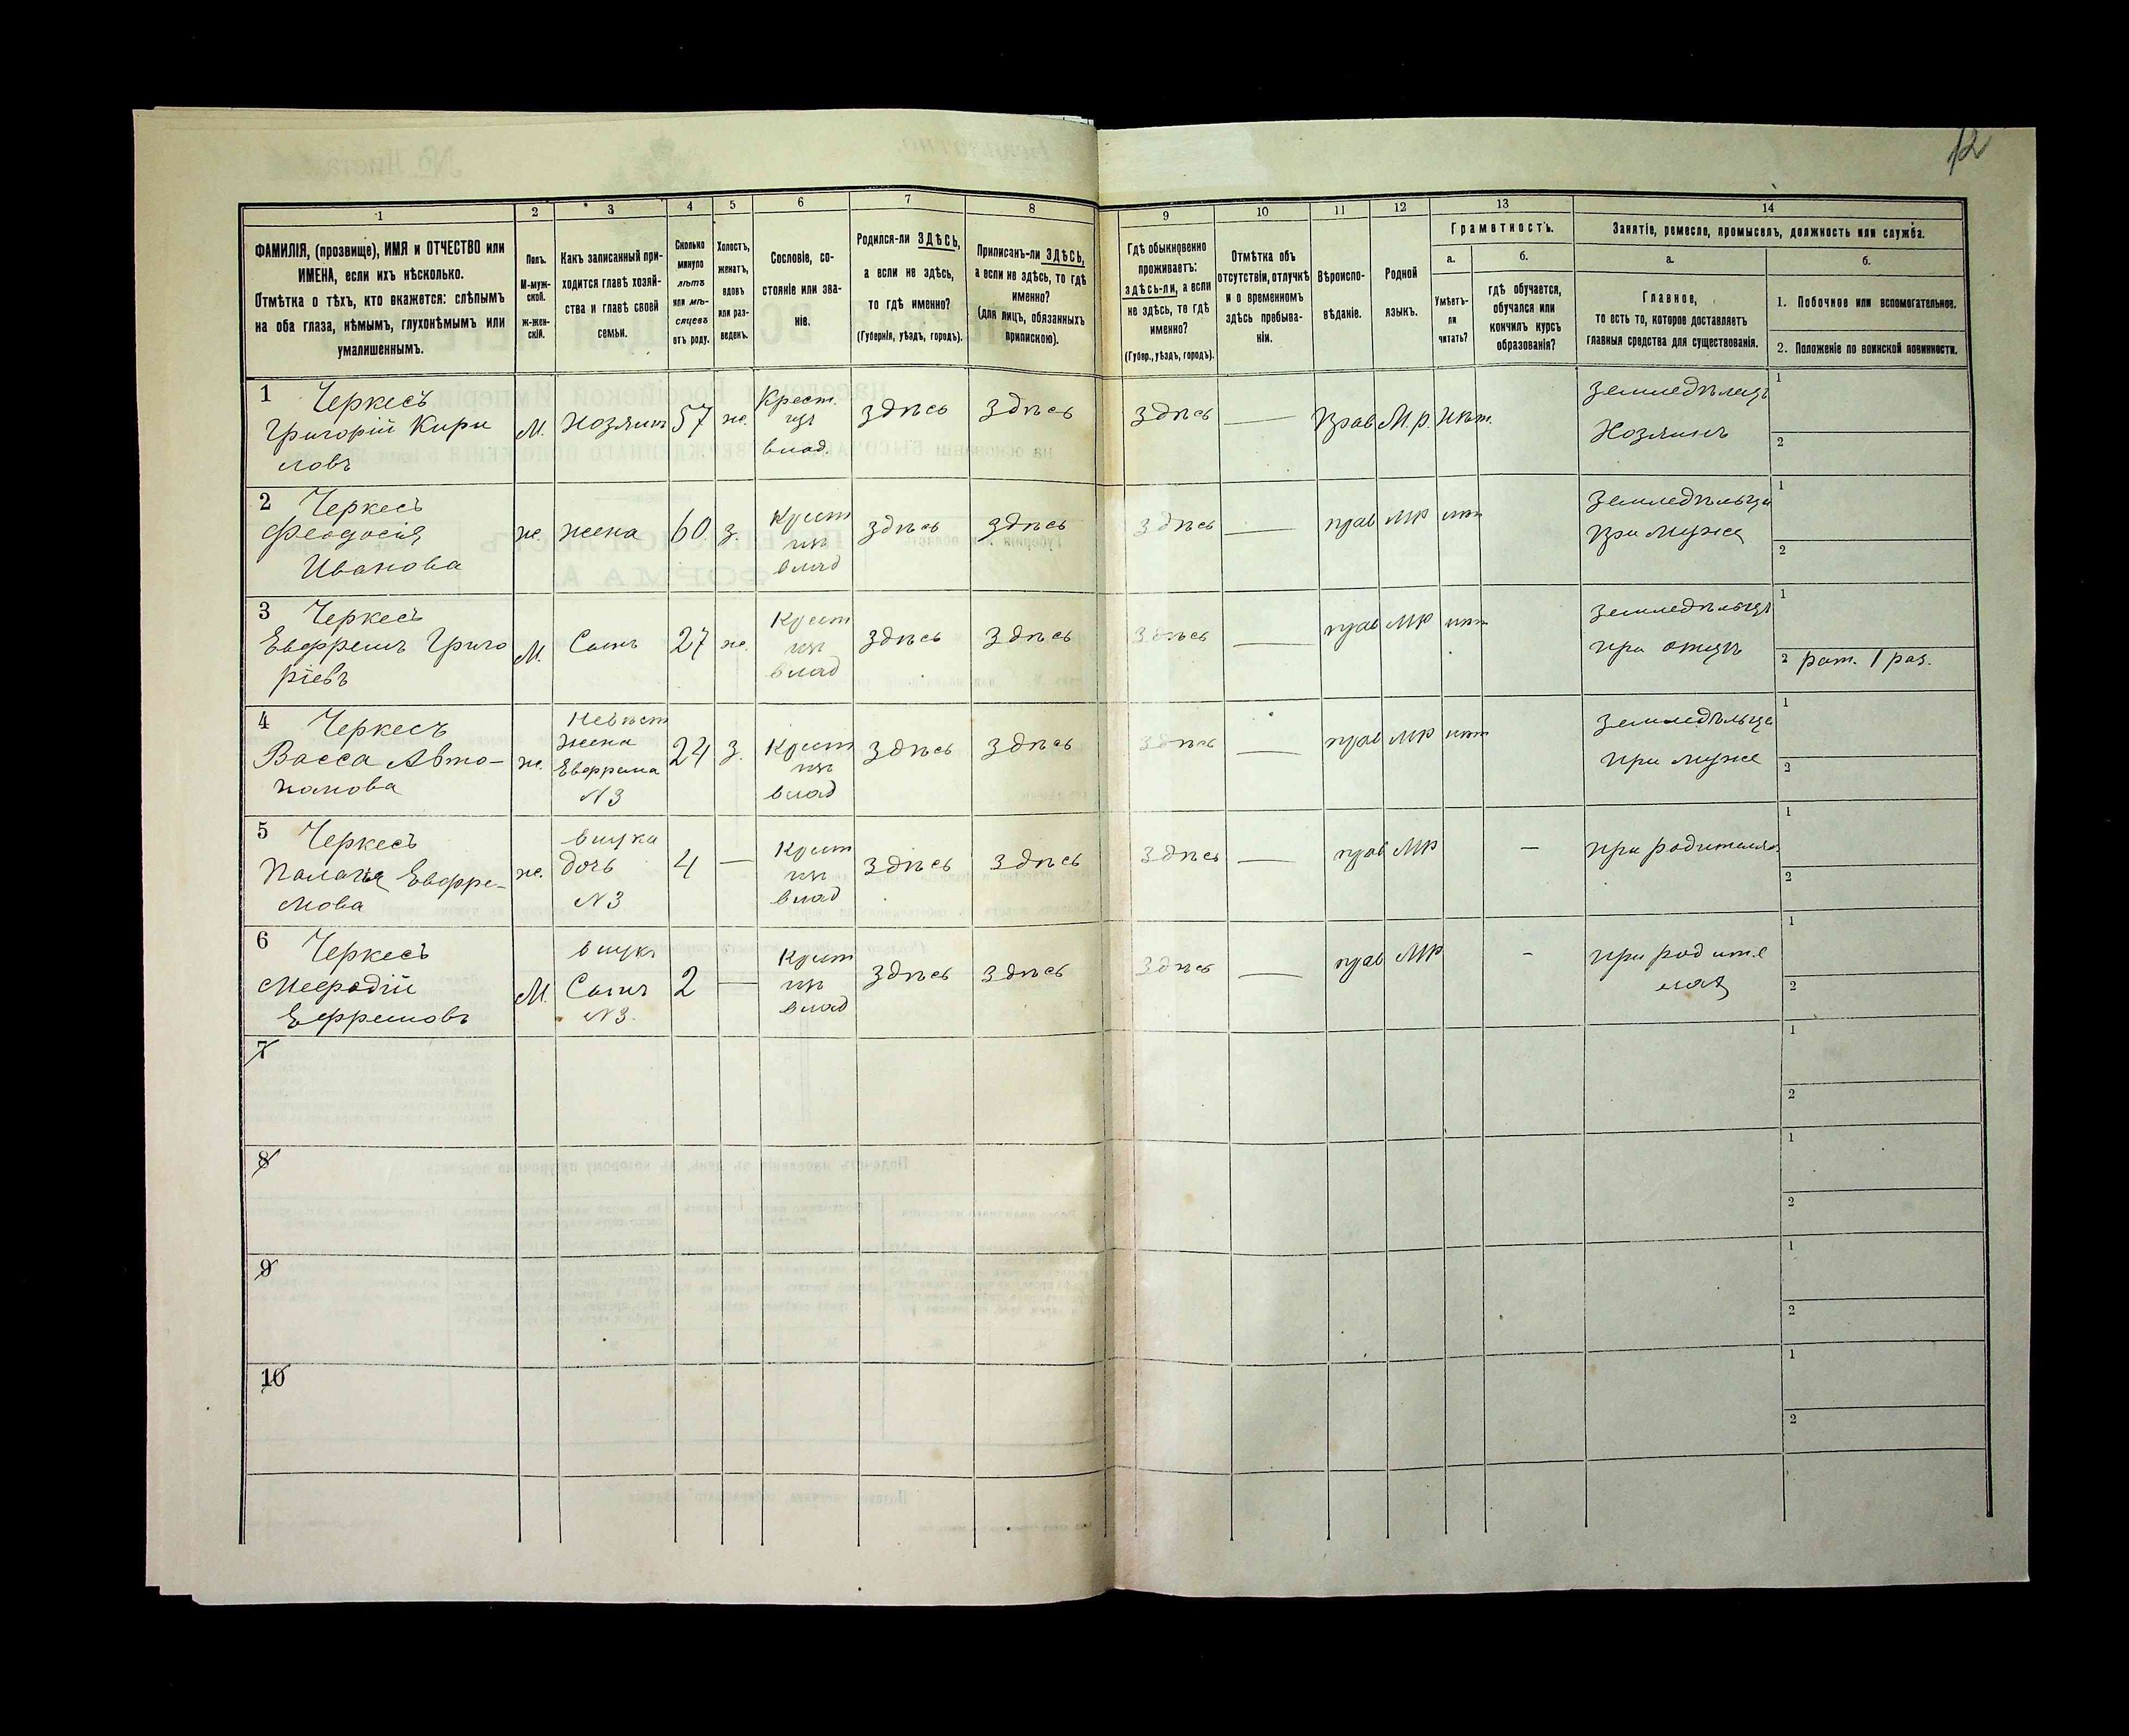 12
1 2 3 4 5 6 7 8 9 10 11 12 13 14
ФАМИЛІЯ, (прозвище), ИМЯ и ОТЧЕСТВО или
ИМЕНА, если ихъ нѣсколько.
Отмѣтка о тѣхъ, кто окажется: слѣпымъ
на оба глаза, нѣмымъ, глухонѣмымъ или
умалишеннымъ.
Полъ.
М-муж-
ской.
ж-жен-
скій.
Какъ записанный при-
ходится главѣ хозяй-
ства и главѣ своей
семьи.
Сколько
минуло
лѣтъ
или мѣ-
сяцевъ
отъ роду.
Холостъ,
женатъ,
вдовъ
или раз-
веденъ.
Сословіе, со-
стояніе или зва-
ніе.
Родился-ли ЗДѢСЬ,
а если не здѣсь,
то гдѣ именно?
(Губернія, уѣздъ, городъ).
Приписанъ-ли ЗДѢСЬ,
а если не здѣсь, то гдѣ
именно?
(для лицъ, обязанныхъ
припискою).
Гдѣ обыкновенно
проживаетъ:
здѣсь-ли, а если
не здѣсь, то гдѣ
именно?
(Губер., уѣздъ, городъ).
Отмѣтка объ
отсутствіи, отлучкѣ
и о временномъ
здѣсь пребыва-
ніи.
Вѣроиспо-
вѣданіе.
Родной
языкъ.
Грамотность.
а.
Умѣетъ-
ли
читать?
б.
гдѣ обучается,
обучался или
кончилъ курсъ
образованія?
Занятіе, ремесло, промыселъ, должность или служба.
а.
Главное,
то есть то, которое доставляетъ
главныя средства для существованія.
б.
1. Побочное или вспомогательное.
2. Положеніе по воинской повинности.
1 Черкесъ
Григорій Кири
ловъ
М. Хозяинъ 57 ж.
Крест.
изъ
влад.
здѣсь здѣсь здѣсь — Прав М.р. Нѣт.
Земледѣлецъ
Хозяинъ
1
2
2 Черкесъ
Феодосія
Иванова
ж. жена 60 з.
Крест
изъ
влад
здѣсь здѣсь здѣсь — прав МР нѣт
Земледѣльца
При мужѣ
1
2
3 Черкесъ
Евфремъ Григо
ріевъ
М. Сынъ 27 ж.
Крест
изъ
влад
здѣсь здѣсь здѣсь — прав МР нѣт
Земледѣлецъ
при отцѣ
1
2 рат. 1 раз.
4 Черкесъ
Васса Авто-
намова
ж.
Невѣст
жена
Евфрема
N3
24 з.
Крест
изъ
влад
здѣсь здѣсь здѣсь — прав МР нѣт
Земледѣльца
при муже
1
2
5 Черкесъ
Палагія Евфре-
мова
ж.
внука
дочь
N3
4 —
Крест
изъ
влад
здѣсь здѣсь здѣсь — прав МР —
при родителях
1
2
6 Черкесъ
Мефодій
Ефремовъ
М.
внукъ
Сынъ
N3.
2 —
Крест
изъ
влад
здѣсь здѣсь здѣсь — прав МР -
при родите
лях
1
2
7
1
2
8
1
2
9
1
2
10
1
2